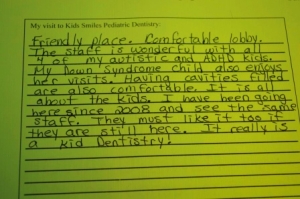 My visit to Kids Smiles Pediatric Dentistry:
Friendly place. Comfortable lobby.
The staff is wonderful with all
4 of my autistic and ADHD kids.
My Down Syndrome child also enjoys
her visits. Having cavities filled
are also comfortable. It is all
about the kids. I have been going
here since 2008 and see the same
staff. They must like it too if
they are still here. It really is
a kid Dentistry!